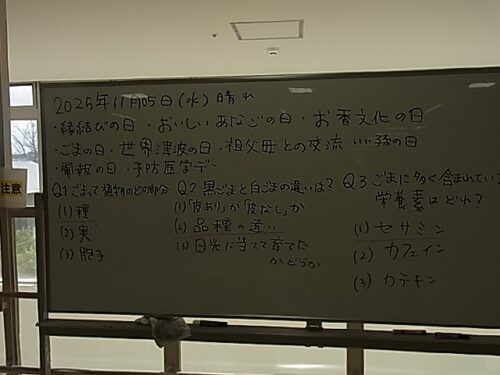 2025年11月05日(水) 晴れ
・縁結びの日・おいしいあなごの日・お香文化の日
・ごまの日・世界津波の日・祖父母との交流・いい孫の日
・電報の日・予防医学デー
Q1 ごまって植物のどの部分
(1) 種
(2) 実
(3) 胞子
Q2 黒ごまと白ごまの違いは?
(1)「皮あり」か「皮なし」か
(2) 品種の違い
(3) 日光に当てて育てた
かどうか
Q3 ごまに多く含まれてい
栄養素はどれ?
(1) セサミン
(2) カフェイン
(3) カテキン
注意